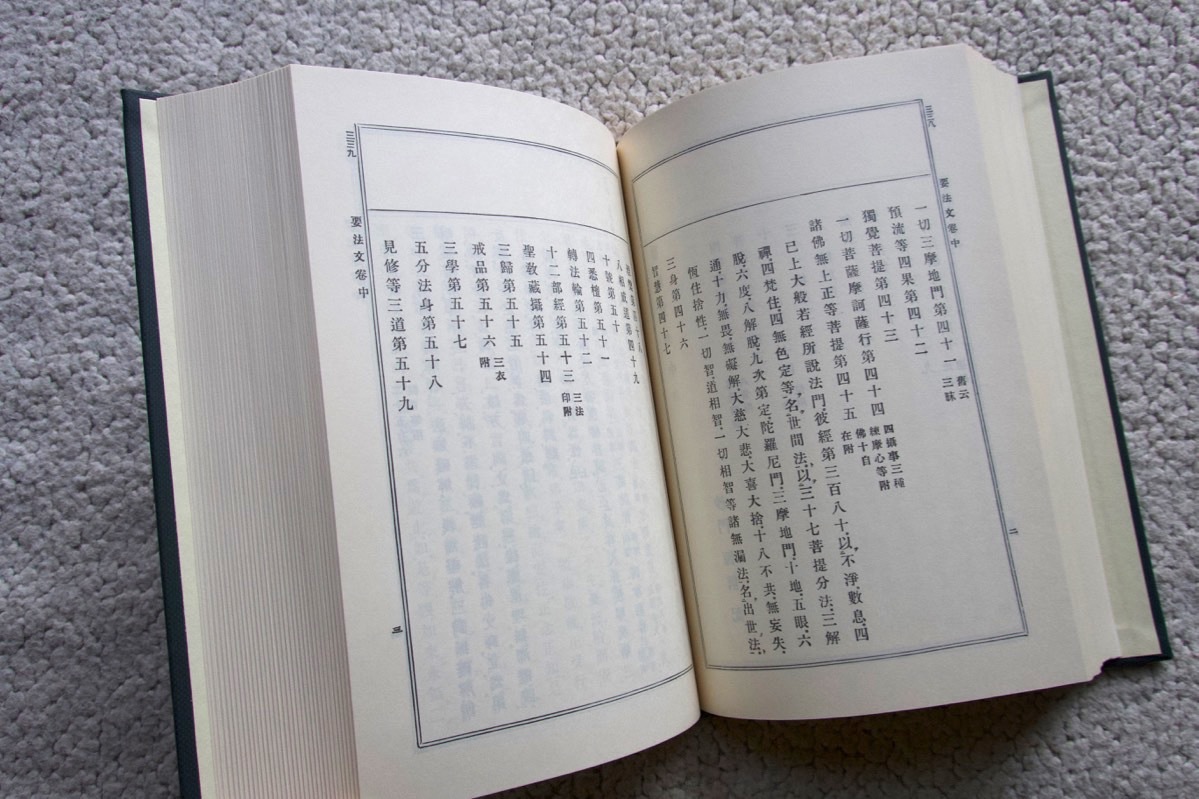 三三八
要法文卷中
一切三摩地門第四十一 舊云三昧
預流等四果第四十二
獨覺菩提第四十三
一切菩薩摩訶薩行第四十四 四攝事三種練摩心等附
諸佛無上正等菩提第四十五 佛十自在附
已上大般若經所說法門彼經第三百八十以不淨數息四
禪四梵住四無色定等名世間法以三十七菩提分法三解
脫六度八解脫九次第定陀羅尼門三摩地門十地五眼六
通十力無畏無礙解大慈大悲大喜大捨十八不共無妄失
恆住捨性一切智道相智一切相智等諸無漏法名出世法
三身第四十六
智慧第四十七
二
三三九
要法文卷中
第四十八
八相成道第四十九
十號第五十
四悉檀第五十一
轉法輪第五十二 三法印附
十二部經第五十三
聖教藏攝第五十四
三歸第五十五
戒品第五十六 三衣附
三學第五十七
五分法身第五十八
見修等三道第五十九
三